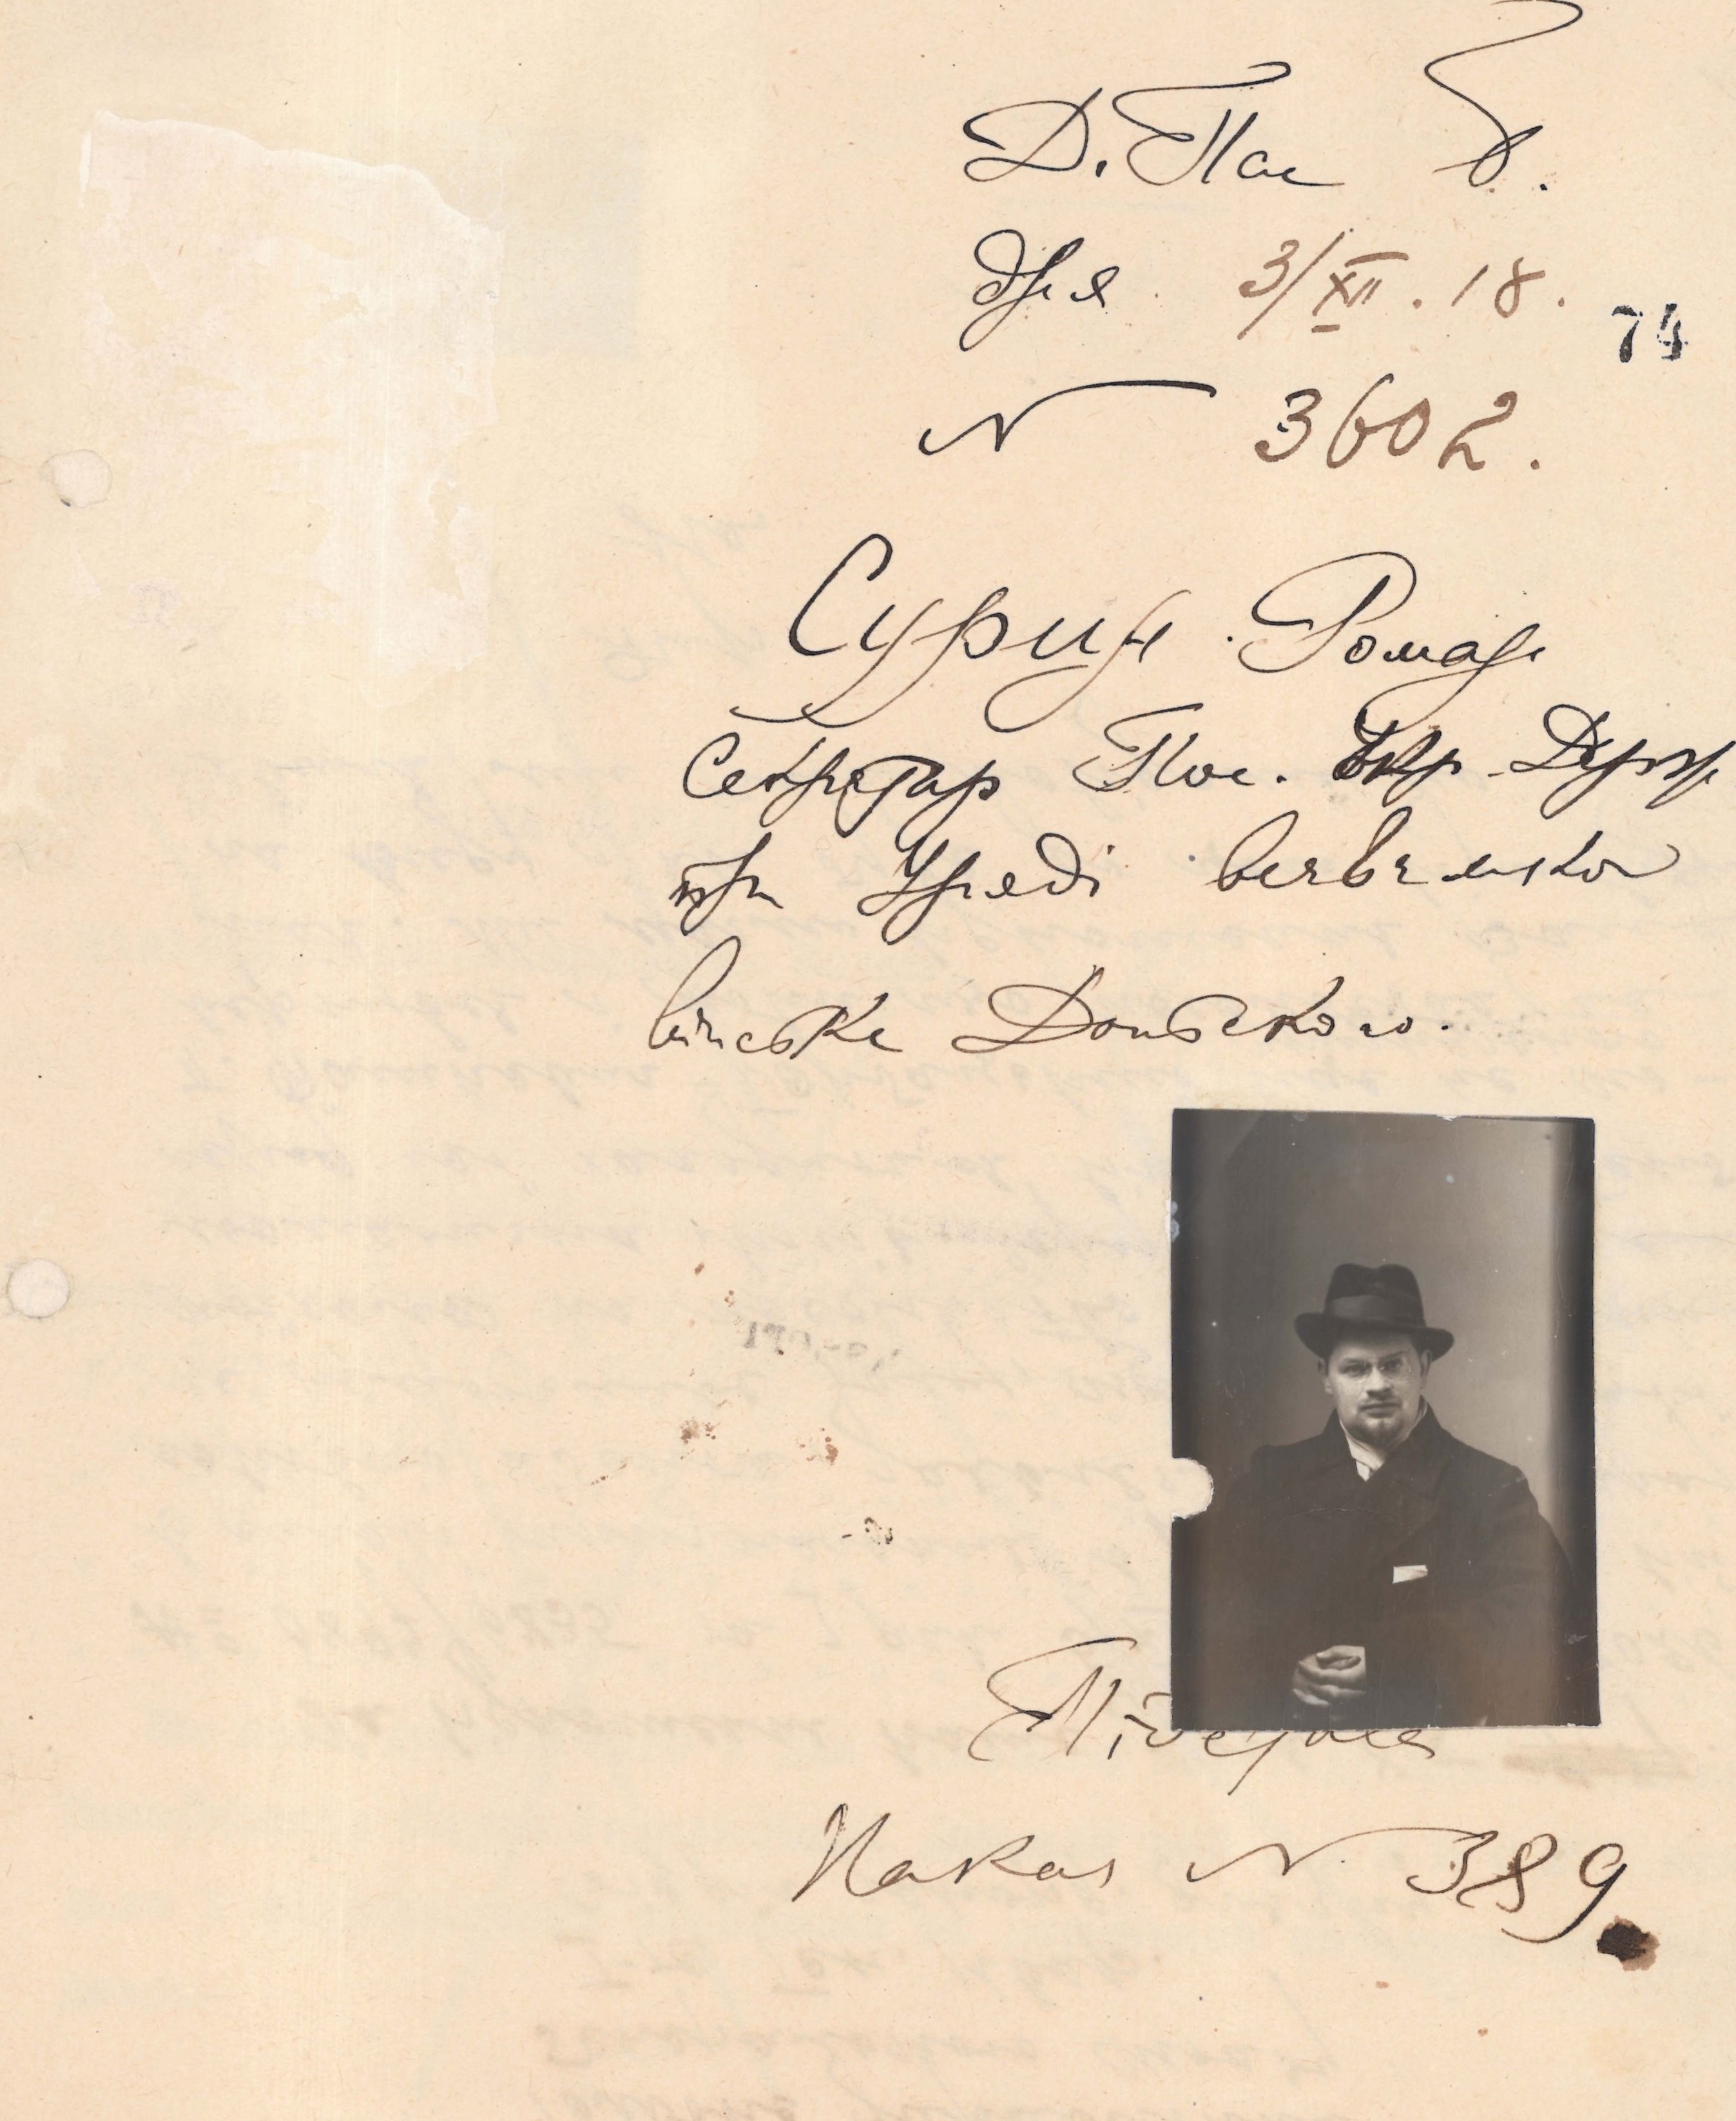 Д. Пас
дня 3/XII. 18.
74
N 3602.
Сурин Роман
Секретар Пос. Укр. Держ
при Уряді всевеликого
війська Донського.
Наказ N. 389.